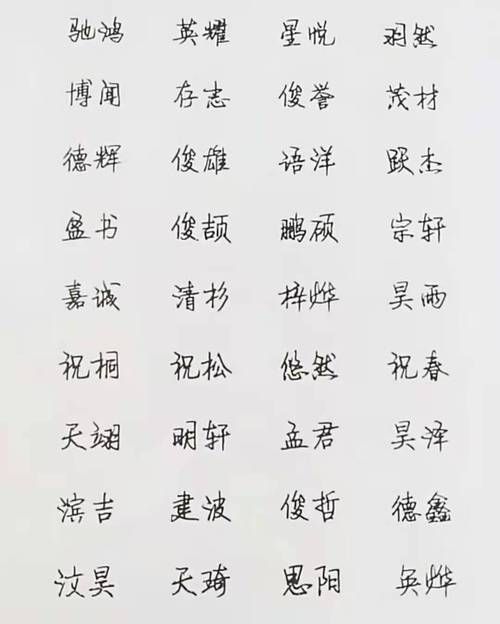 驰鸿 英耀 星悦 羽然
博闻 存志 俊誉 茂材
德辉 俊雄 语洋 跃杰
孟书 俊颉 鹏硕 宗轩
嘉诚 清杉 梓烨 昊雨
祝桐 祝松 悠然 祝春
天翊 明轩 孟君 昊泽
滨吉 建波 俊哲 德鑫
汶昊 天琦 思阳 英烨